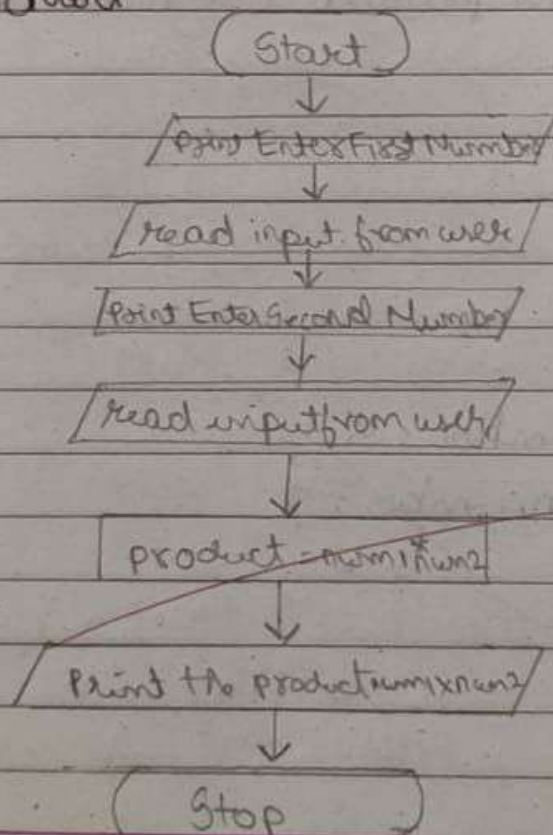 Start
Print Enter First Number
read input from user
Print Enter Second Number
read input from user
product = num1*num2
Print the product num1xnum2
Stop